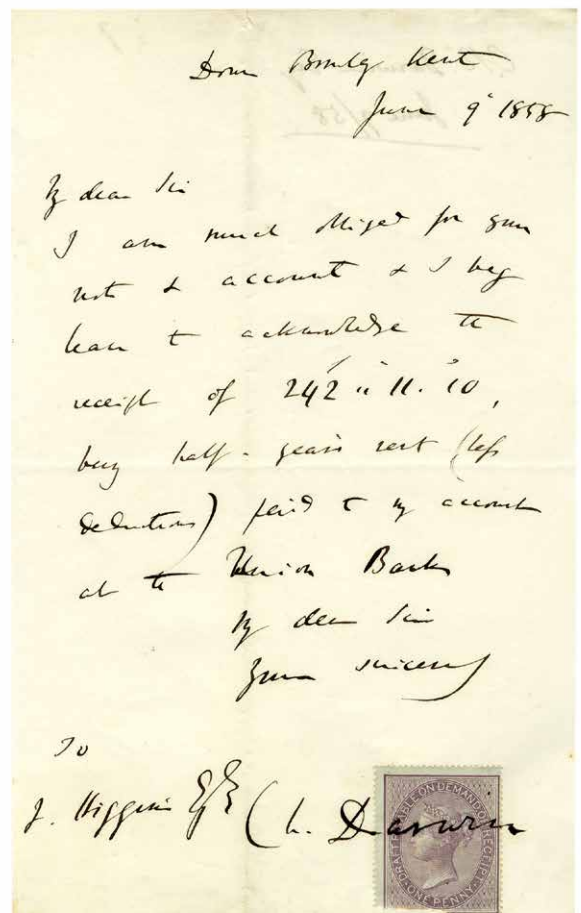 Down Bromley Kent
June 9th 1858
My dear Sir
I am much obliged for your
note & account & I beg
leave to acknowledge the
receipt of 242 " 11. 10,
being half-years rent (less
deductions) paid to my account
at the Union Bank
My dear Sir
Yours sincerely
To
J. Higgins Esqre
Ch. Darwin
DRAFT PAYABLE ON DEMAND OR RECEIPT
ONE PENNY